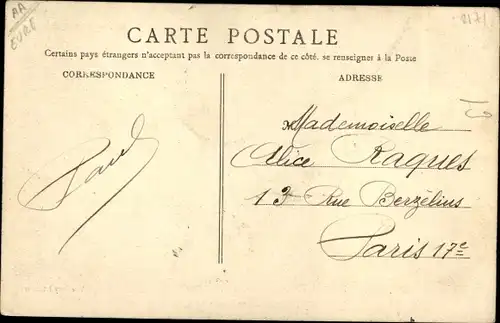 AA
EURE
CARTE POSTALE
Certains pays étrangers n'acceptant pas la correspondance de ce côté, se renseigner à la Poste
CORRESPONDANCE
ADRESSE
Paul
Mademoiselle
Alice Raques
13 Rue Berzélius
Paris 17e